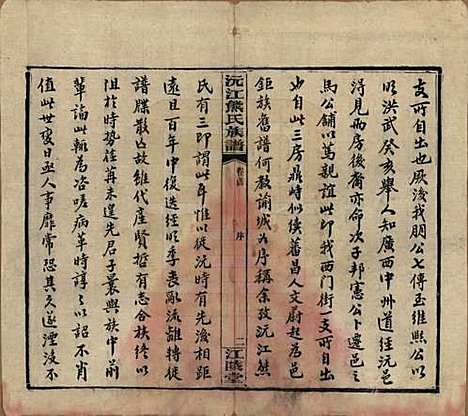 支所自出也厥後我朋公七傳至維熊公以
明洪武癸亥舉人知廣西中州道經沅邑
而兩房裔亦命次子邦憲公卜遷邑之
馬公鋪以篤親誼此即我西門街一支所自出
也自此三房鼎峙似續蕃昌人文蔚起為邑
鉅族舊譜何教諭城九序稱余攷沅江熊
沅江熊氏族譜
卷首
序
二
江陵堂
氏有三即謂此耳惟以從沅有先後相距
遠且百年中復迭經明季喪亂流離轉徙
譜牒散亡故雖代產賢哲有意合族終以
阻於時勢徃苒未遑先君子曩與族中前
輩論此輒為咨嗟病革時諄諄以詔不肖
值此世變日亟人事靡常恐其久遂湮沒不